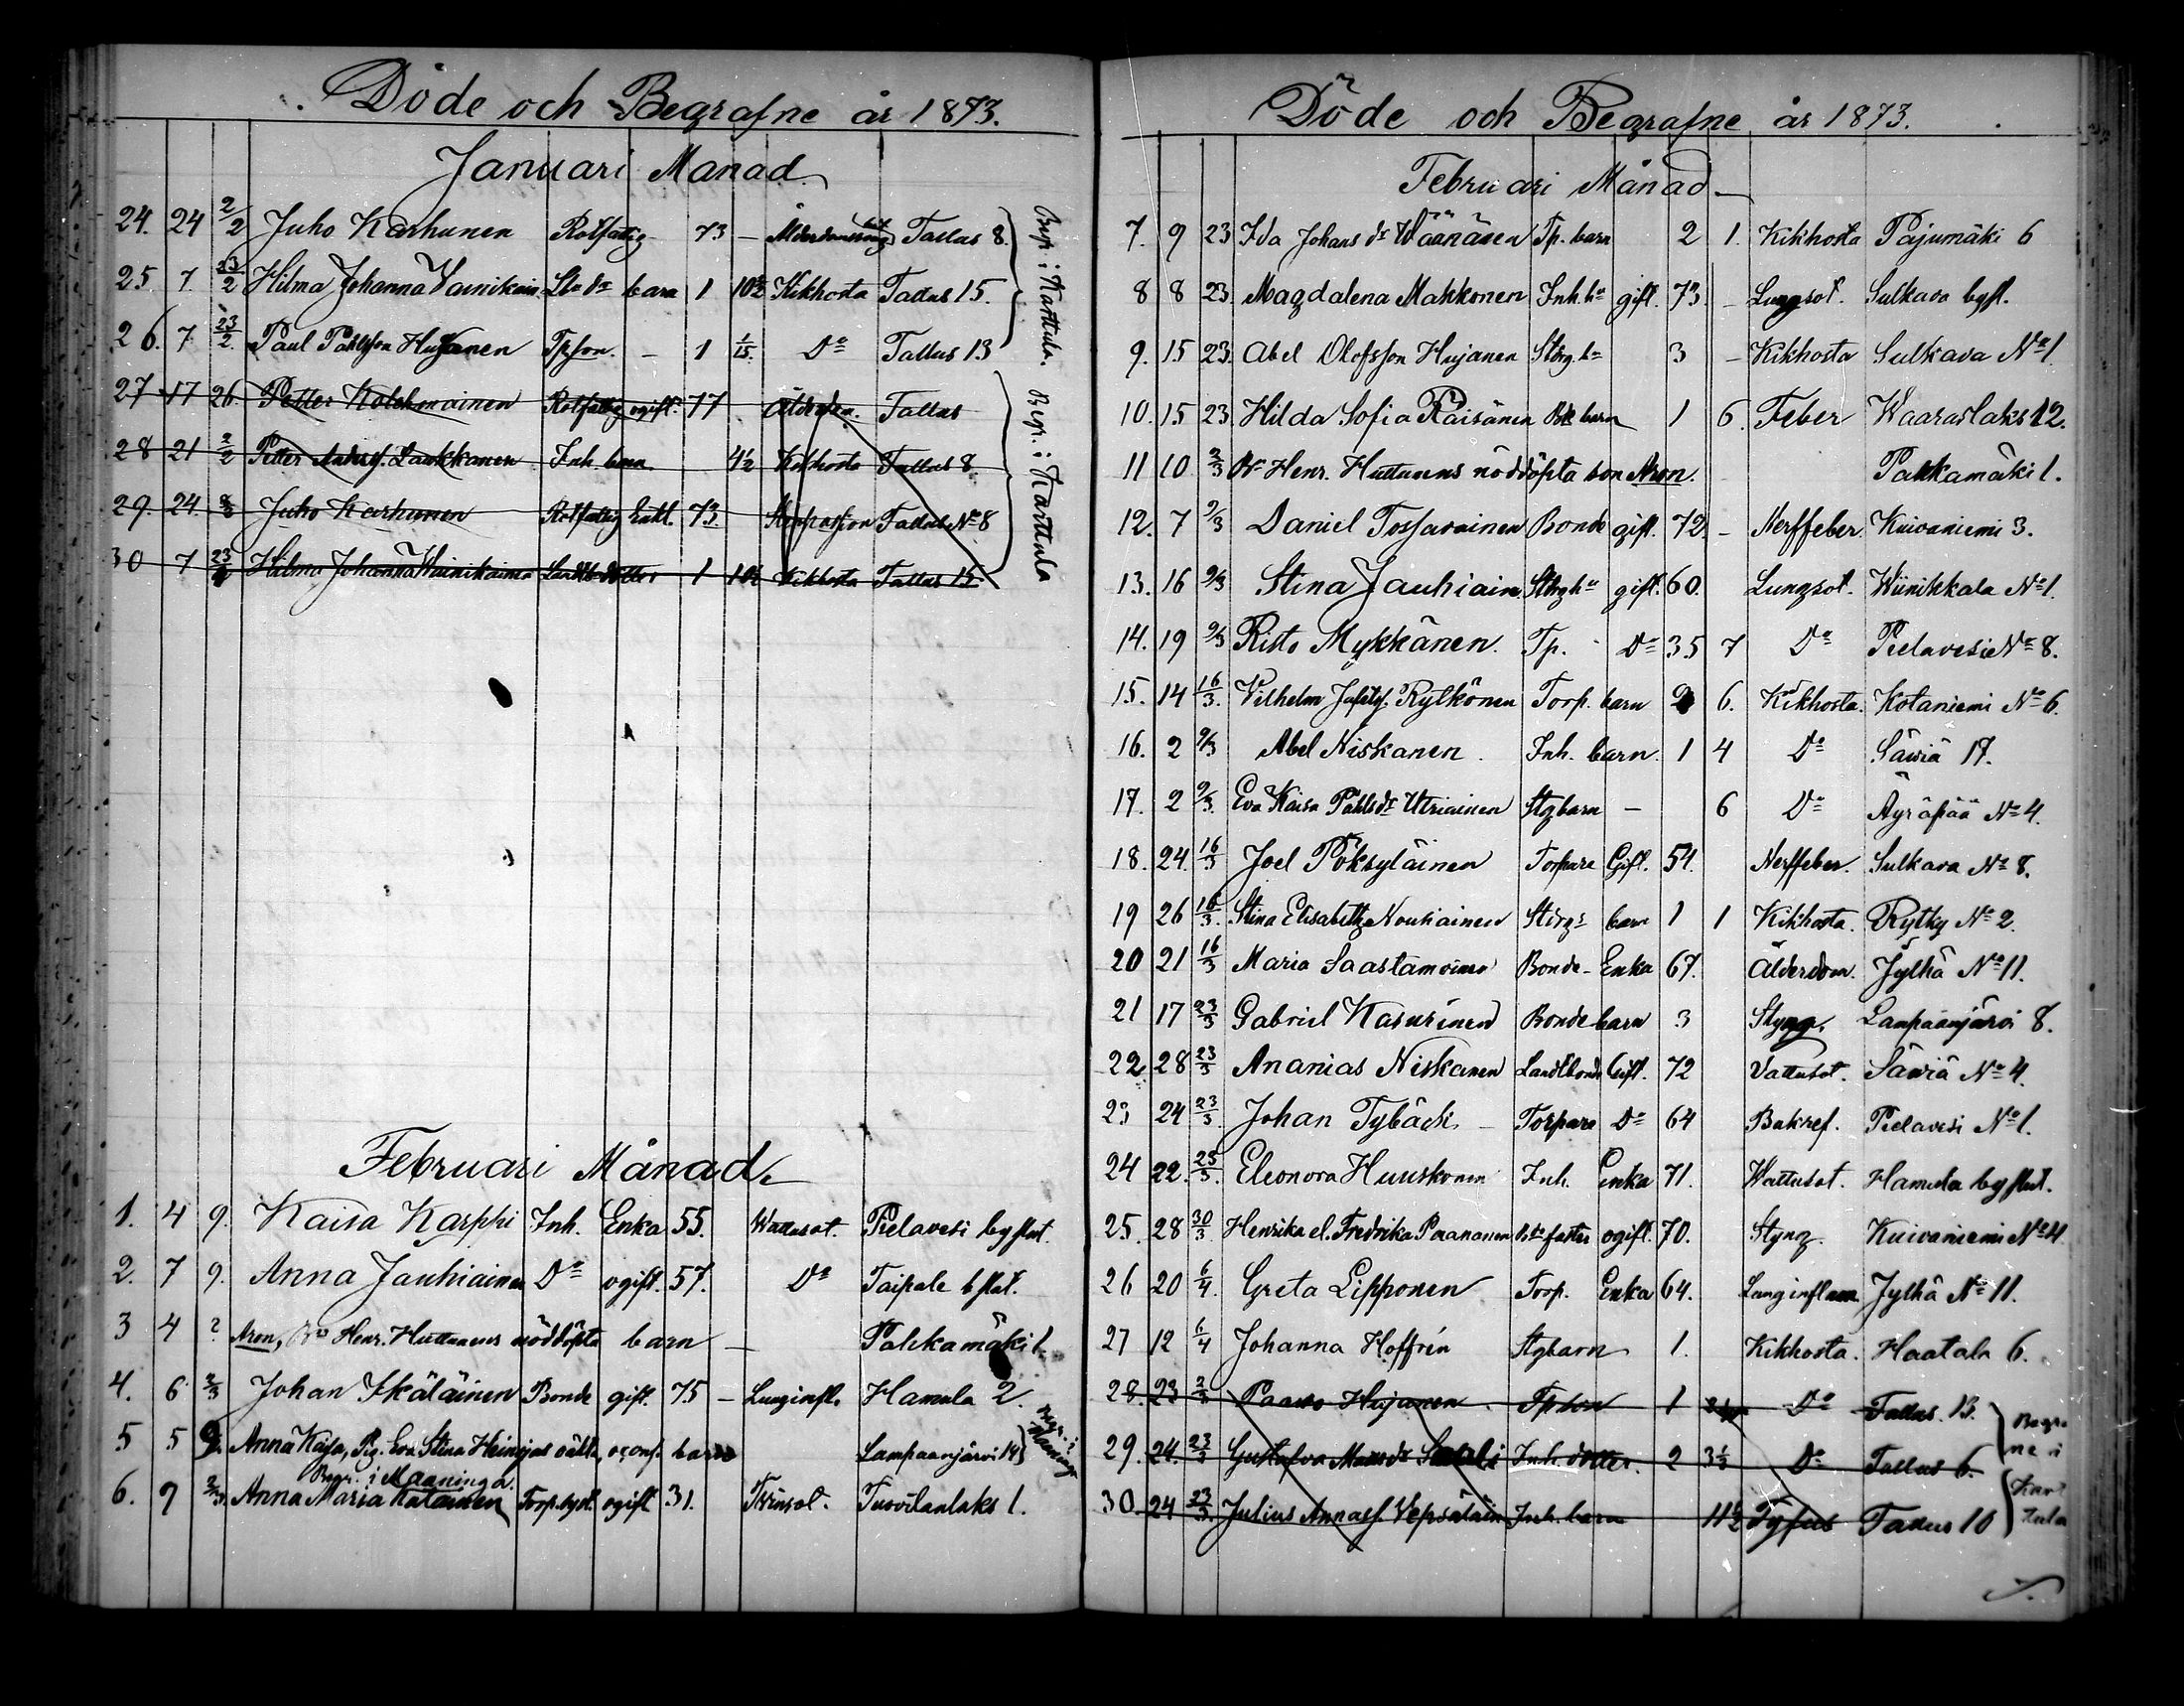 Döde och Begrafne år 1873.
Januari Månad
24. 24 2/2 Juho Karhunen Rotfattig 73 — Ålderdom Tallus 8.
25 7. 23/2 Hilma Johanna Wainikain barn 1 10½ Kikhosta Tallus 15.
26. 7 23/2 Paul Påhlsson Hujanen Tpson. — 1 1/15. Do Tallus 13
Begr. i Karttula.
27 17 26 Petter Kolehmainen Rotfattig ogift. 77 Ålderdom. Tallus
28 21 2/2 Petter Andersf. Laukkanen Inh. barn 4½ Kikhosta Tallus 8.
29. 24. Juho Karhunen Rotfattig Enkl. 73. Tallus No 8
30 7 23 Hilma Johanna Wainikainen Landb. dotter 1 10½ Kikhosta Tallus 15
Begr. i Karttula
Februari Månad
1. 4 9. Kaisa Karppi Inh. Enka 55. Wattusot. Pielavesi byflut.
2. 7 9. Anna Jauhiainen Do ogift. 57. Do Taipale bflut.
3 4 ? Aron, Bo Henr. Huttunens nöddöpta barn — Pakkamäki 1.
4. 6 2/3 Johan Ikäläinen Bonde gift. 75 — Lunginfl. Hamula 2.
5 5 9. Anna Kaisa, Pig. Eva Stina Heinojas oäkta, oconf. barn Lampaanjärvi 14
Begr. i Maaninga
6. 9 2/3 Anna Maria Katainen Torp. syst. ogift 31. Twinsot. Tuovilanlaks 1.
Begr. i Maaninga.
Döde och Begrafne år 1873.
Februari Månad
7. 9 23 Ida Johans dr Wäänänen Tp. barn 2 1. Kikhosta Pajumäki 6
8 8 23. Magdalena Makkonen Inh. hu gift. 73 — Lungsot. Sulkava byfl.
9. 15 23. Abel Olofsson Hujanen 3 — Kikhosta Sulkava No 1.
10. 15 23. Hilda Sofia Räisänen barn 1 6. Feber Waaraslaks 12.
11 10 2/3 Bo Henr. Huttunens nöddöpta son Aron. Pakkamäki 1.
12. 7 9/3 Daniel Tossavainen Bonde gift. 72. — Nerffeber. Kuivaniemi 3.
13. 16 9/3 Stina Jauhiainen gift. 60. Lungsot. Wiinikkala No 1.
14. 19 9/3 Risto Mykkänen. Tp. Do 35 7 Do Pielavesi No 8.
15. 14 16/3. Vilhelm Rytkönen Torp. barn 2 6. Kikhosta. Kotaniemi No 6.
16. 2 9/3 Abel Niskanen. Inh. barn. 1 4 Do Säviä 17.
17. 2 9/3. Eva Kaisa Påhlsdr Utriainen Stgbarn — 6 Do Äyräpää No 4.
18. 24. 16/3 Joel Pöksyläinen Torpare Gift. 54. Nerffeber. Sulkava No 8.
19 26 16/3. Stina Elisabeth Noukiainen barn 1 1 Kikhosta. Rytky No 2.
20 21 16/3 Maria Saastamoinen Bonde- Enka 67. Ålderdom. Jylhä No 11.
21 17 23/3 Gabriel Kasurinen Bonde barn 3 Styng. Lampaanjärvi 8.
22. 28 23/3 Ananias Niskanen Landtbonde Gift. 72 Vattusot. Säviä No 4.
23 24 23/3. Johan Tybäck — Torpare Do 64 Bakref. Pielavesi No 1.
24 22. 25/3. Eleonora Huuskonen Inh. Enka 71. Wattusot. Hamula byflut.
25. 28 30/3. Henrika el. Fredrika Paananen faster ogift. 70. Styng. Kuivaniemi No 4.
26 20 6/4. Greta Lipponen Torp. Enka 64. Lunginflam. Jylhä No 11.
27 12 6/4 Johanna Hoffrén Stgbarn 1. Kikhosta. Haatala 6.
28. 23 2/3 Paavo Hujanen Tpson 1 Do Tallus. 13.
29. 24. 23/3 Gustafva Matsdr Inh. dotter. 2 3½ Do Tallus 6.
30. 24 23/3. Julius Annasf. Vepsäläinen Inh. barn 11½ Tyfus Tallus 10
Begrafne i Karttula